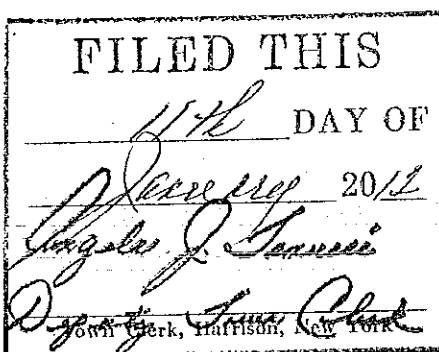 FILED THIS
11th DAY OF
January 2012
Angela J.
Deputy Town Clerk
Town Clerk, Harrison, New York